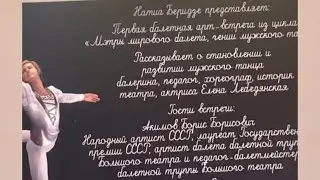 Натиа Беридзе представляет:
Первая балетная арт-встреча из цикла
«Мэтры мирового балета, гении мужского та
Рассказывает о становлении и
развитии мужского танца
балерина, педагог, хореограф, историк
театра, актриса Елена Лебедянская
Гости встречи:
Акимов Борис Борисович
Народный артист СССР, лауреат Государствен
премии СССР, артист балета балетной труп
Большого театра и педагог-балетмейстер
балетной труппы Большого театра